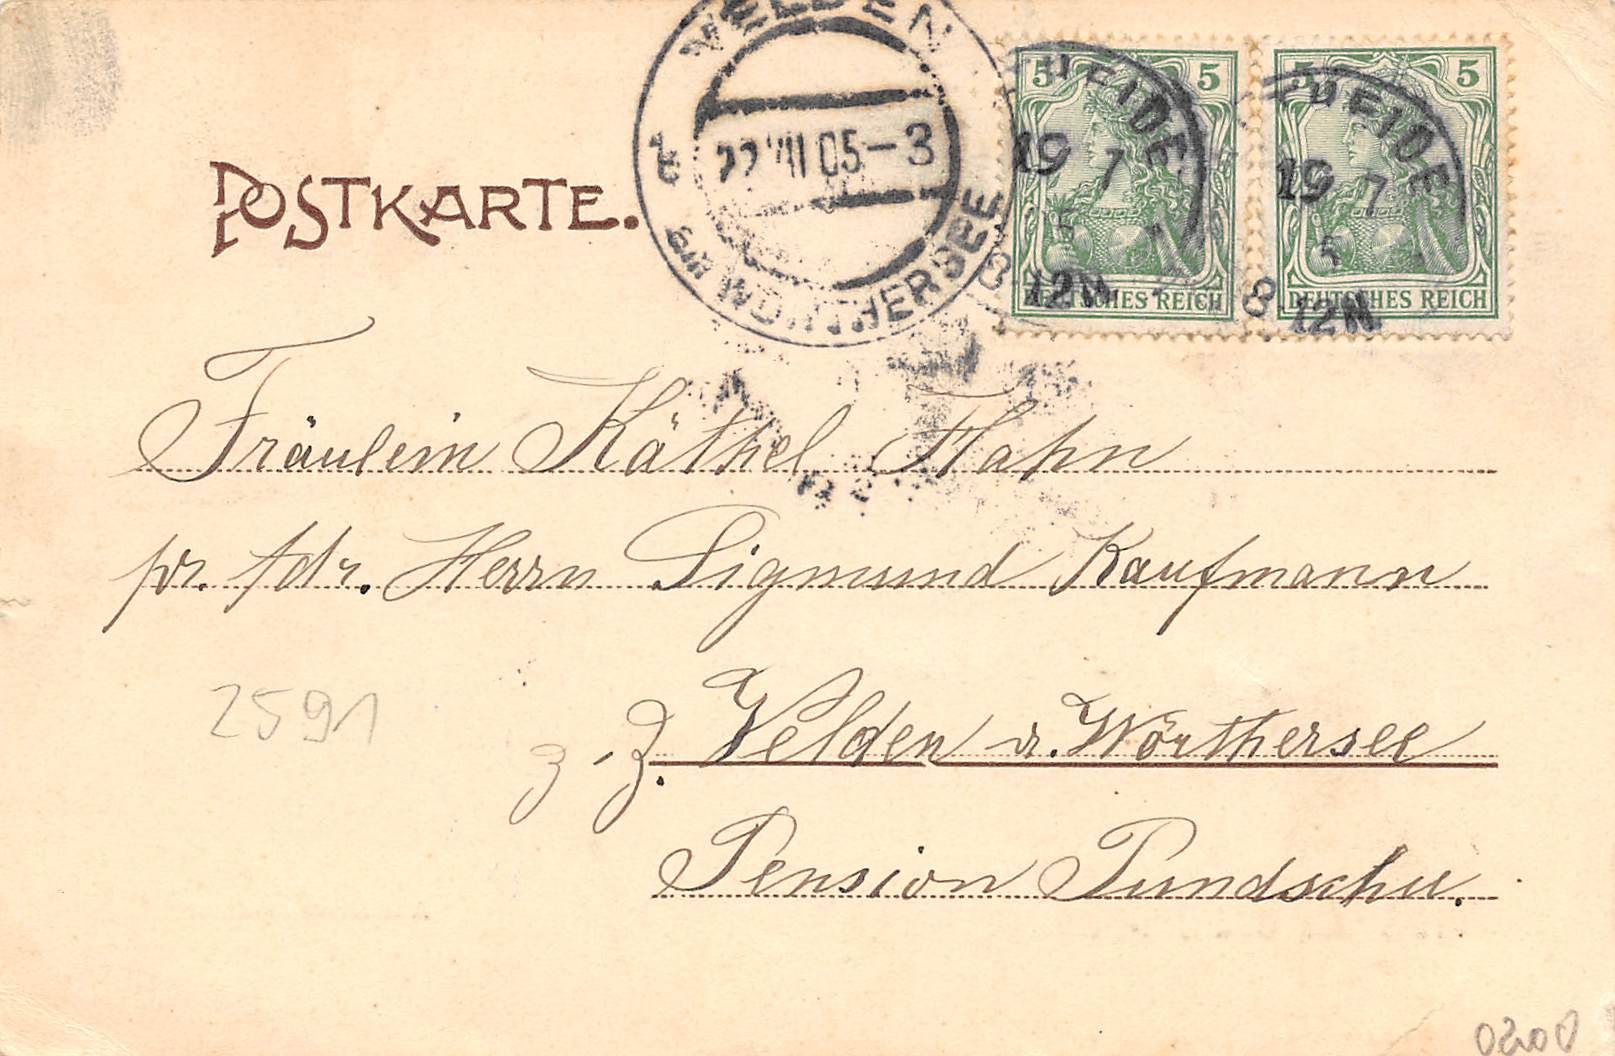 VELDEN
am WÖRTHERSEE
22 VII 05-3
5 5 5 5
HEIDE
19 7
5
8 12N
HEIDE
19 7
5
8 12N
DEUTSCHES REICH DEUTSCHES REICH
POSTKARTE.
Fräulein Käthel Hahn
pr. Adr. Herrn Sigmund Kaufmann
2591
z. Z. Velden a. Wörthersee
Pension Pundschu.